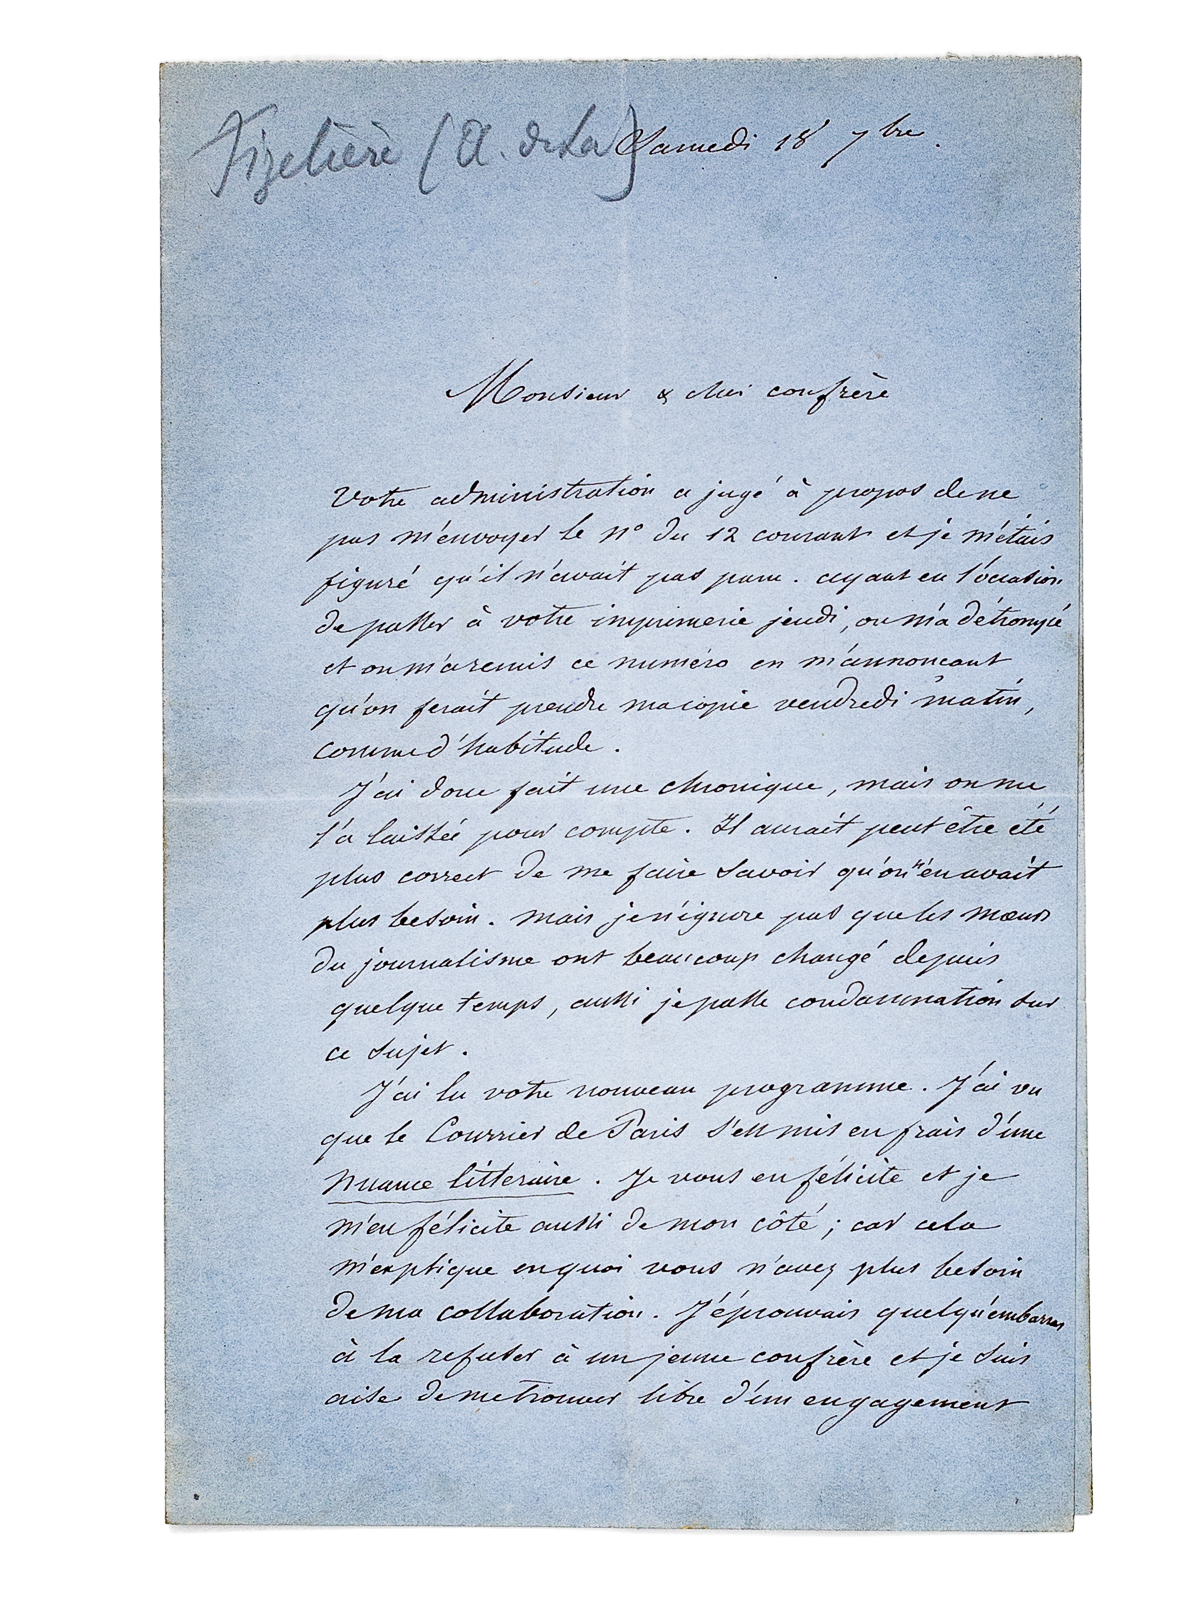 Fizelière (A. de La)
Samedi 18 7bre.
Monsieur & cher confrère
Votre administration a jugé à propos de ne
pas m'envoyer le n° du 12 courant et je m'étais
figuré qu'il n'avait pas paru. ayant eu l'occasion
de passer à votre imprimerie jeudi, on m'a détrompé
et on m'a remis ce numéro en m'annonçant
qu'on ferait prendre ma copie vendredi matin,
comme d'habitude.
J'ai donc fait une chronique, mais on me
l'a laissée pour compte. Il aurait peut être été
plus correct de me faire savoir qu'on n'en avait
plus besoin. mais je n'ignore pas que les mœurs
du journalisme ont beaucoup changé depuis
quelque temps, aussi je passe condamnation sur
ce sujet.
J'ai lu votre nouveau programme. J'ai vu
que le Courrier de Paris s'est mis en frais d'une
nuance littéraire. Je vous en félicite et je
m'en félicite aussi de mon côté; car cela
m'explique en quoi vous n'avez plus besoin
de ma collaboration. J'éprouvais quelqu'embarras
à la refuser à un jeune confrère et je suis
aise de me trouver libre d'un engagement